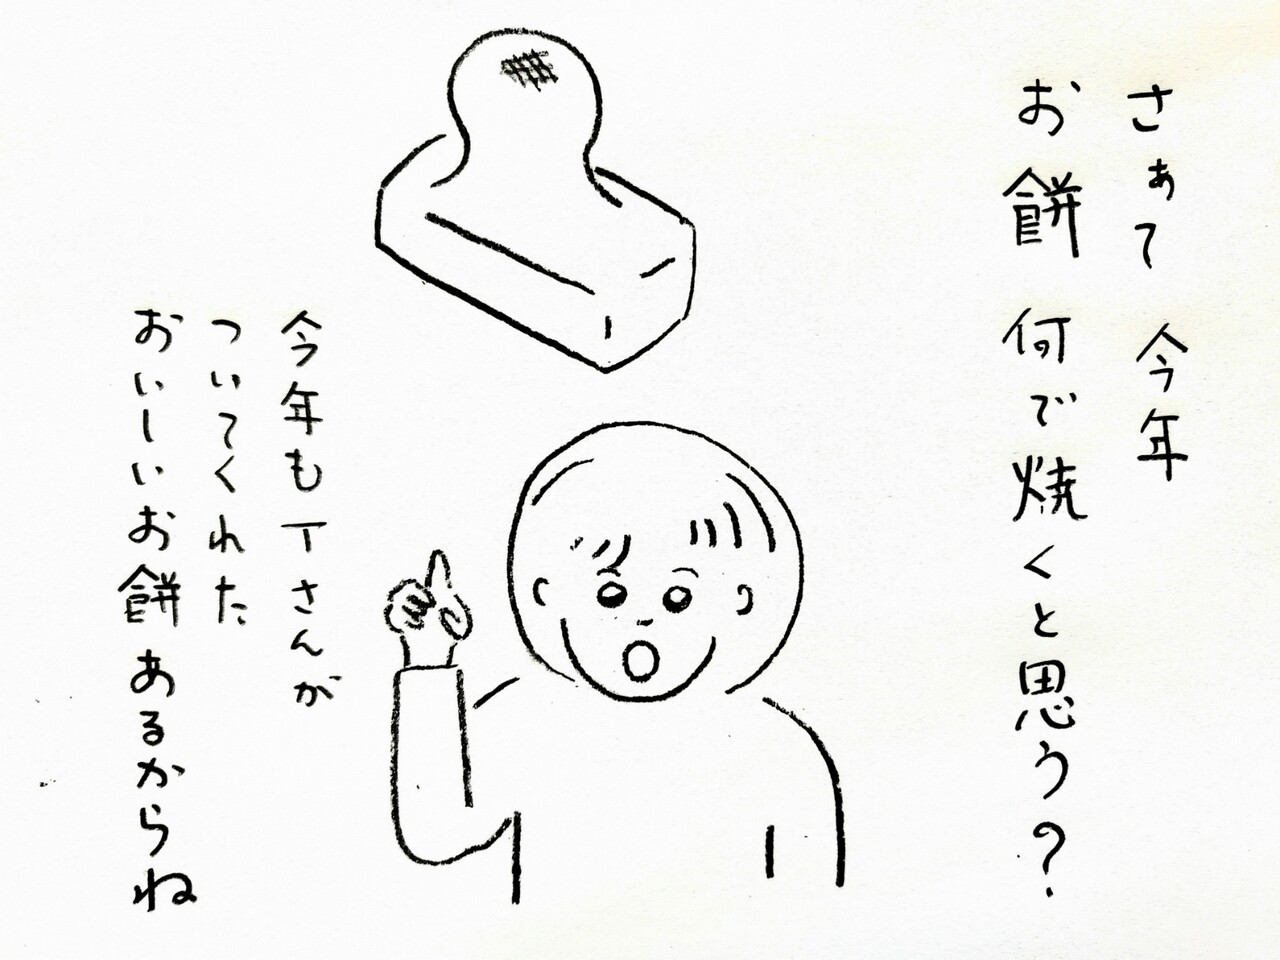 さぁて 今年
お餅 何で焼くと思う?
今年も Tさんが
ついてくれた
おいしいお餅あるからね